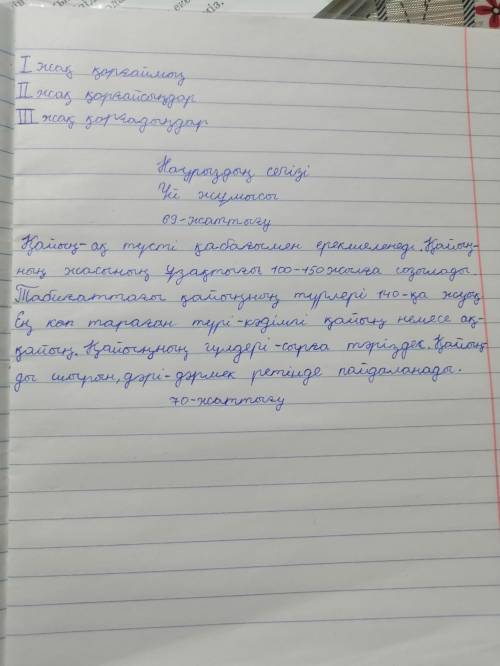 І жақ қорғаймыз
ІІ жақ қорғайсыңдар
ІІІ жақ қорғадыңдар
Наурыздың сегізі
Үй жұмысы
69-жаттығу
Қайың-ақ түсті қабағымен ерекшеленеді. Қайың-
ның жасының ұзақтығы 100-150 жылға созылады.
Табиғаттағы қайыңның түрлері 140-қа жуық
Ең көп тараған түрі-кәдімгі қайың немесе ақ-
қайың. Қайыңның гүлдері-сырға тәріздек. Қайың-
ды шырын, дәрі-дәрмек ретінде пайдаланады.
70-жаттығу